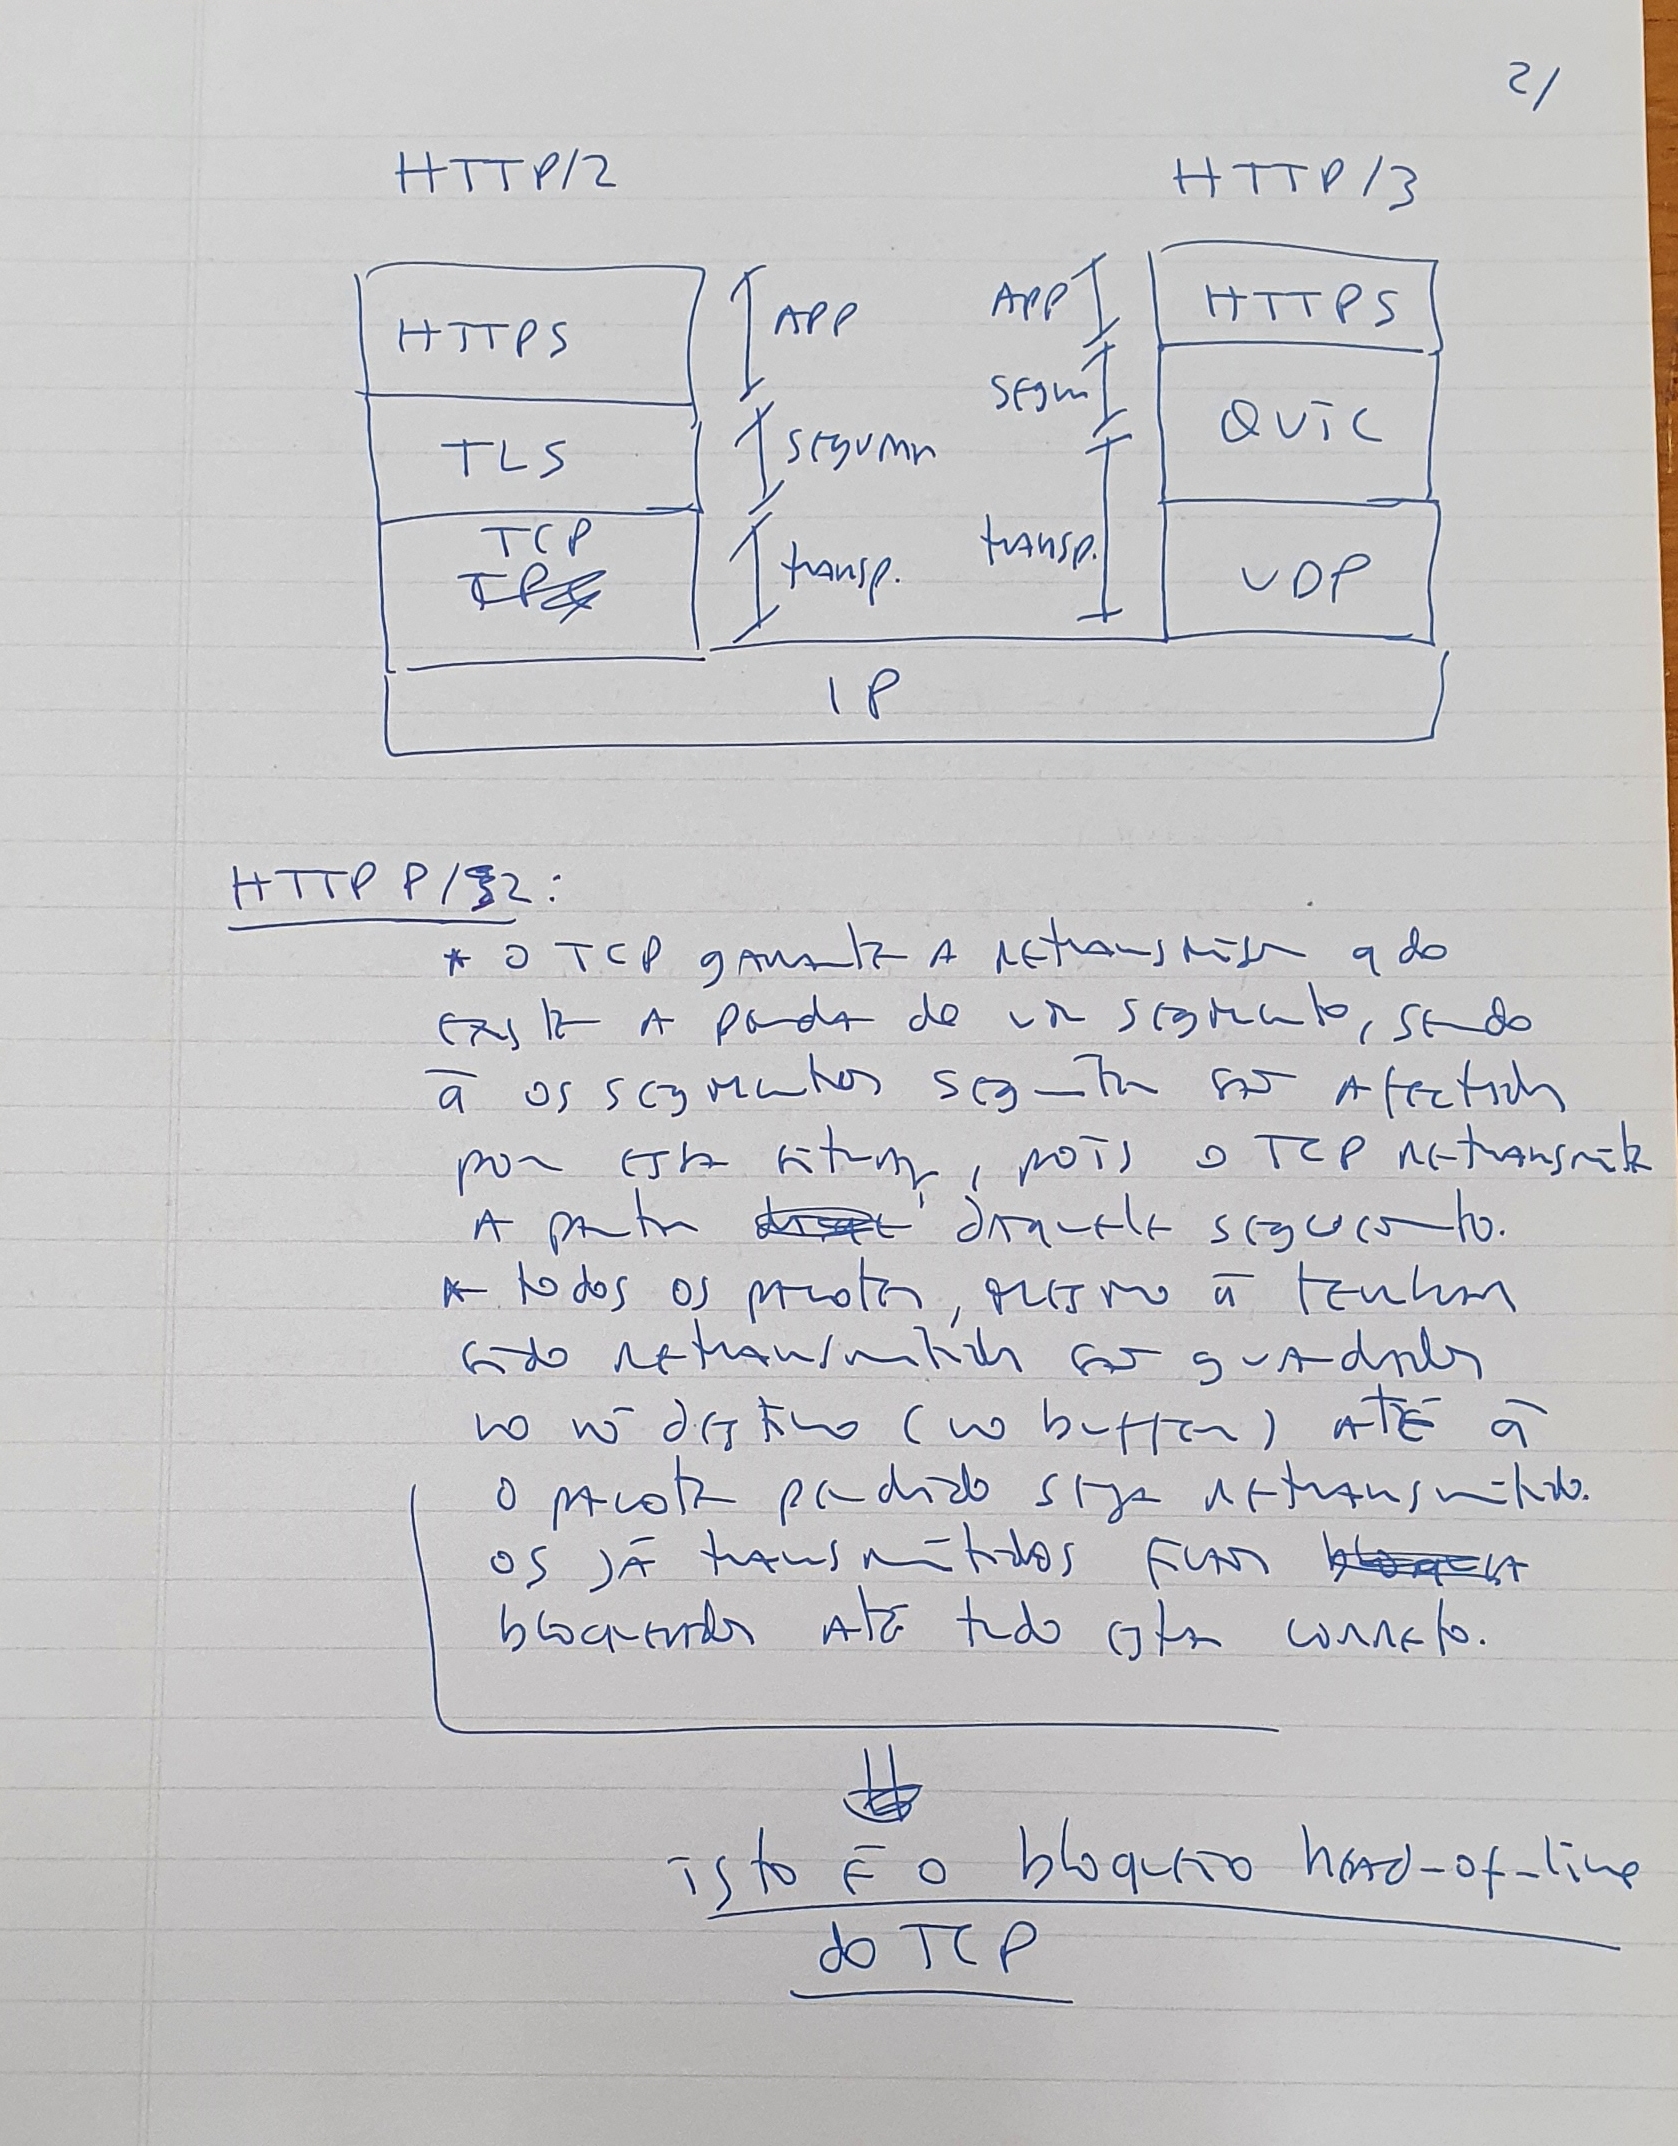 2/
HTTP/2 HTTP/3
HTTPS APP APP HTTPS
TLS seguran segu QUIC
TCP transp. transp. UDP
IP
HTTP P/2:
* O TCP garante A retransmissão qdo
existe A perda de um segmento, sendo
q̄ os segmentos seguintes são Afectados
por esta situação, pois o TCP retransmite
A partir daquele segmento.
* todos os pacotes, mesmo q̄ tenham
sido retransmitidos são guardados
no nó destino (no buffer) ATÉ q̄
o pacote perdido seja retransmitido.
os JÁ transmitidos ficam
bloqueados ATÉ tudo estar correto.
isto É o bloqueio head-of-line
do TCP